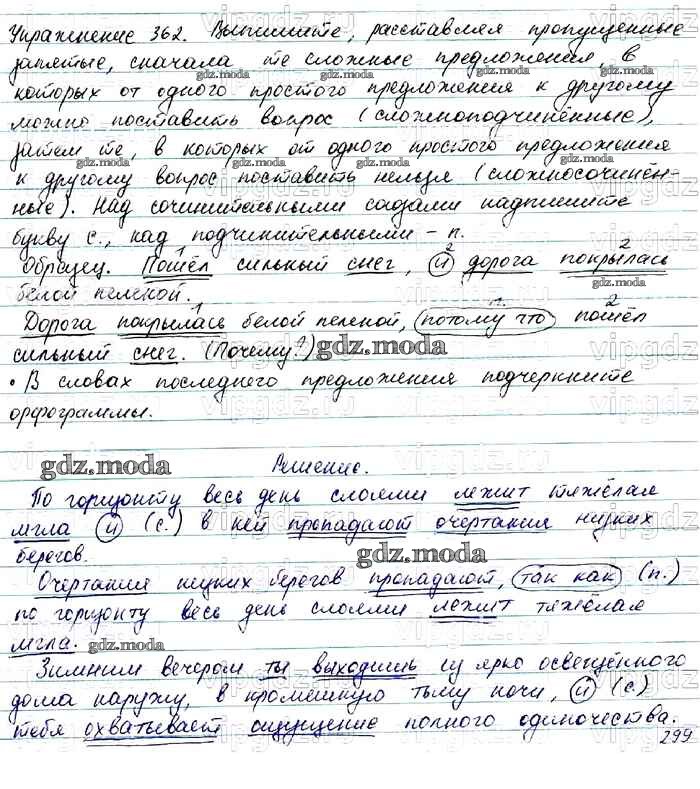 Упражнение 362. Выпишите, расставляя пропущенные
запятые, сначала те сложные предложения, в
gdz.moda gdz.moda gdz.moda
которых от одного простого предложения к другому
можно поставить вопрос (сложноподчинённые),
затем те, в которых от одного простого предложения
gdz.moda gdz.moda gdz.moda
к другому вопрос поставить нельзя (сложносочинён-
ные). Над сочинительными союзами надпишите
букву с., над подчинительными – п.
Образец. Пошёл сильный снег, и дорога покрылась
белой пеленой.
Дорога покрылась белой пеленой, потому что пошёл
сильный снег. (Почему?) gdz.moda
• В словах последнего предложения подчеркните
орфограммы.
gdz.moda Решение.
По горизонту весь день слоями лежит тяжёлая
мгла и (с.) в ней пропадают очертания низких
берегов.
gdz.moda
Очертания низких берегов пропадают, так как (п.)
по горизонту весь день слоями лежит тяжёлая
мгла. gdz.moda
Зимним вечером ты выходишь из ярко освещённого
дома наружу, в кромешную тьму ночи, и (с.)
тебя охватывает ощущение полного одиночества.
299